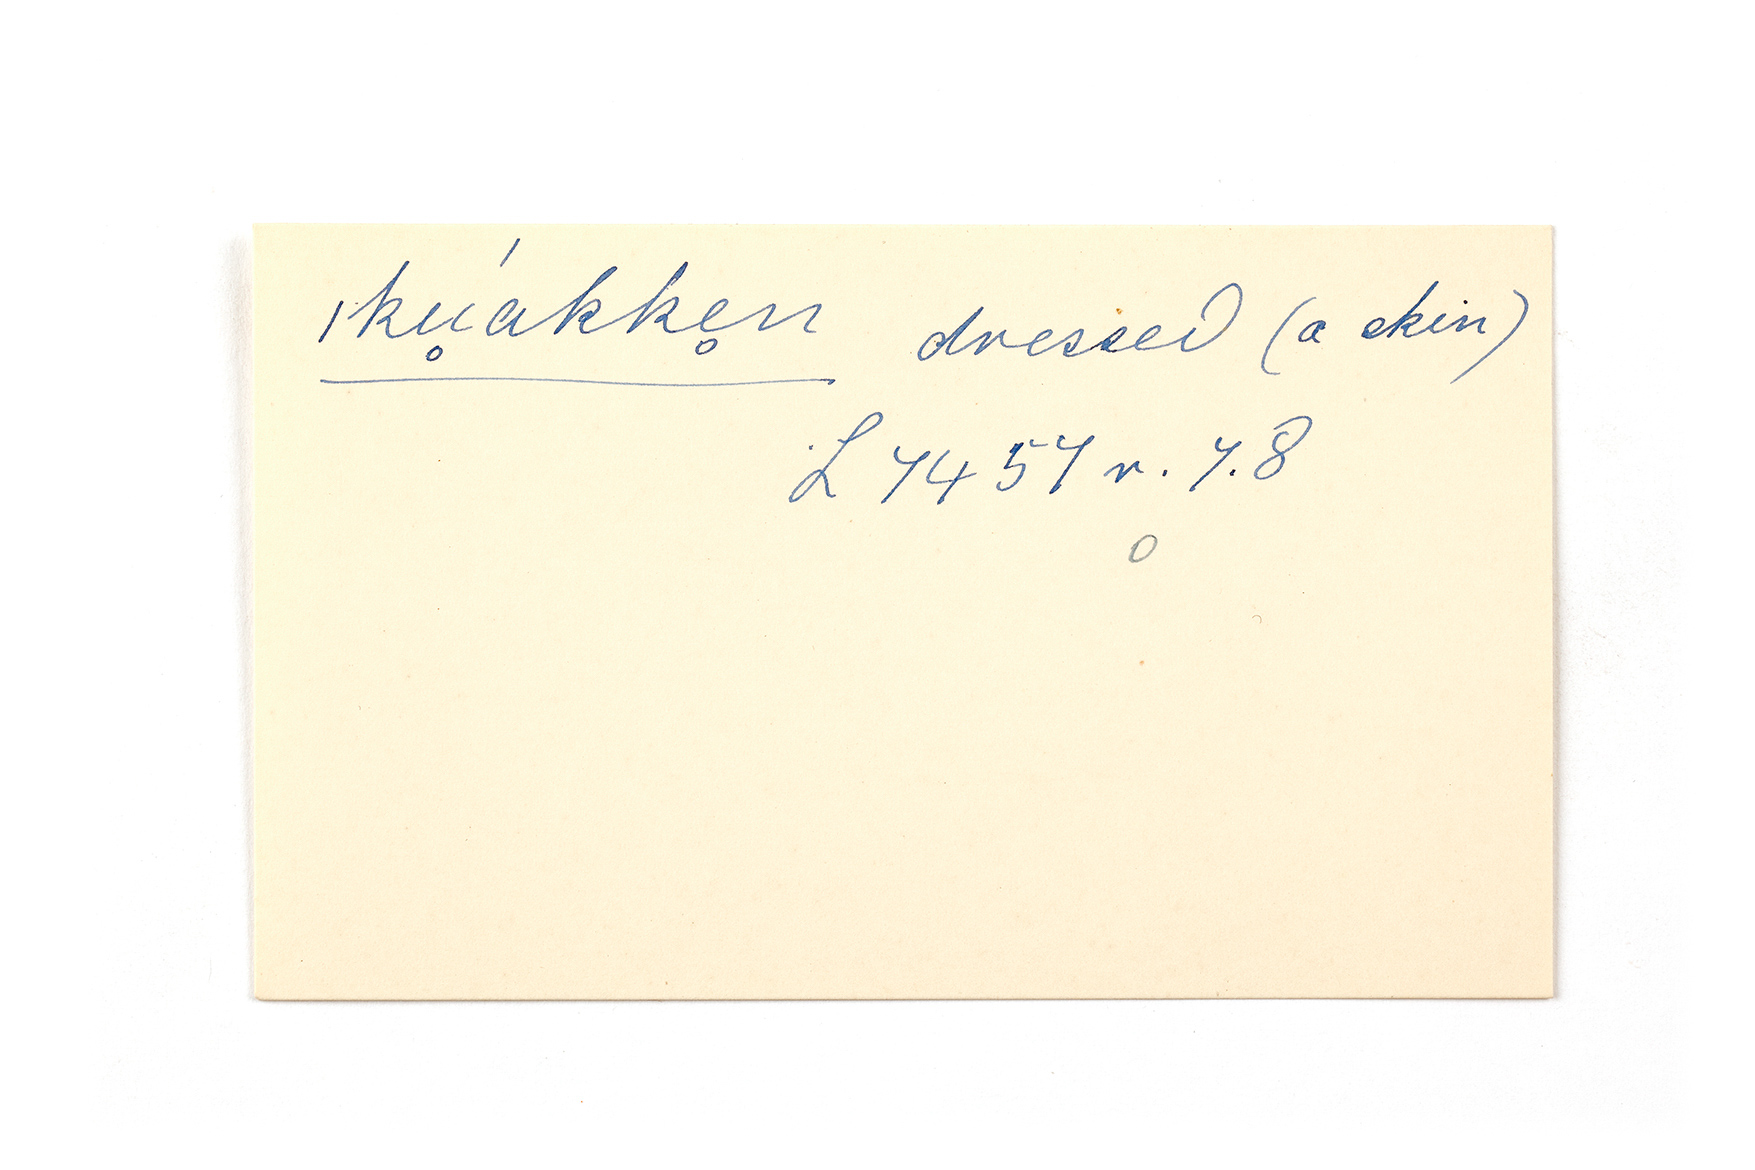 ǀku̥ákke̥n dressed (a skin)
L 7457 r. 7.8
o